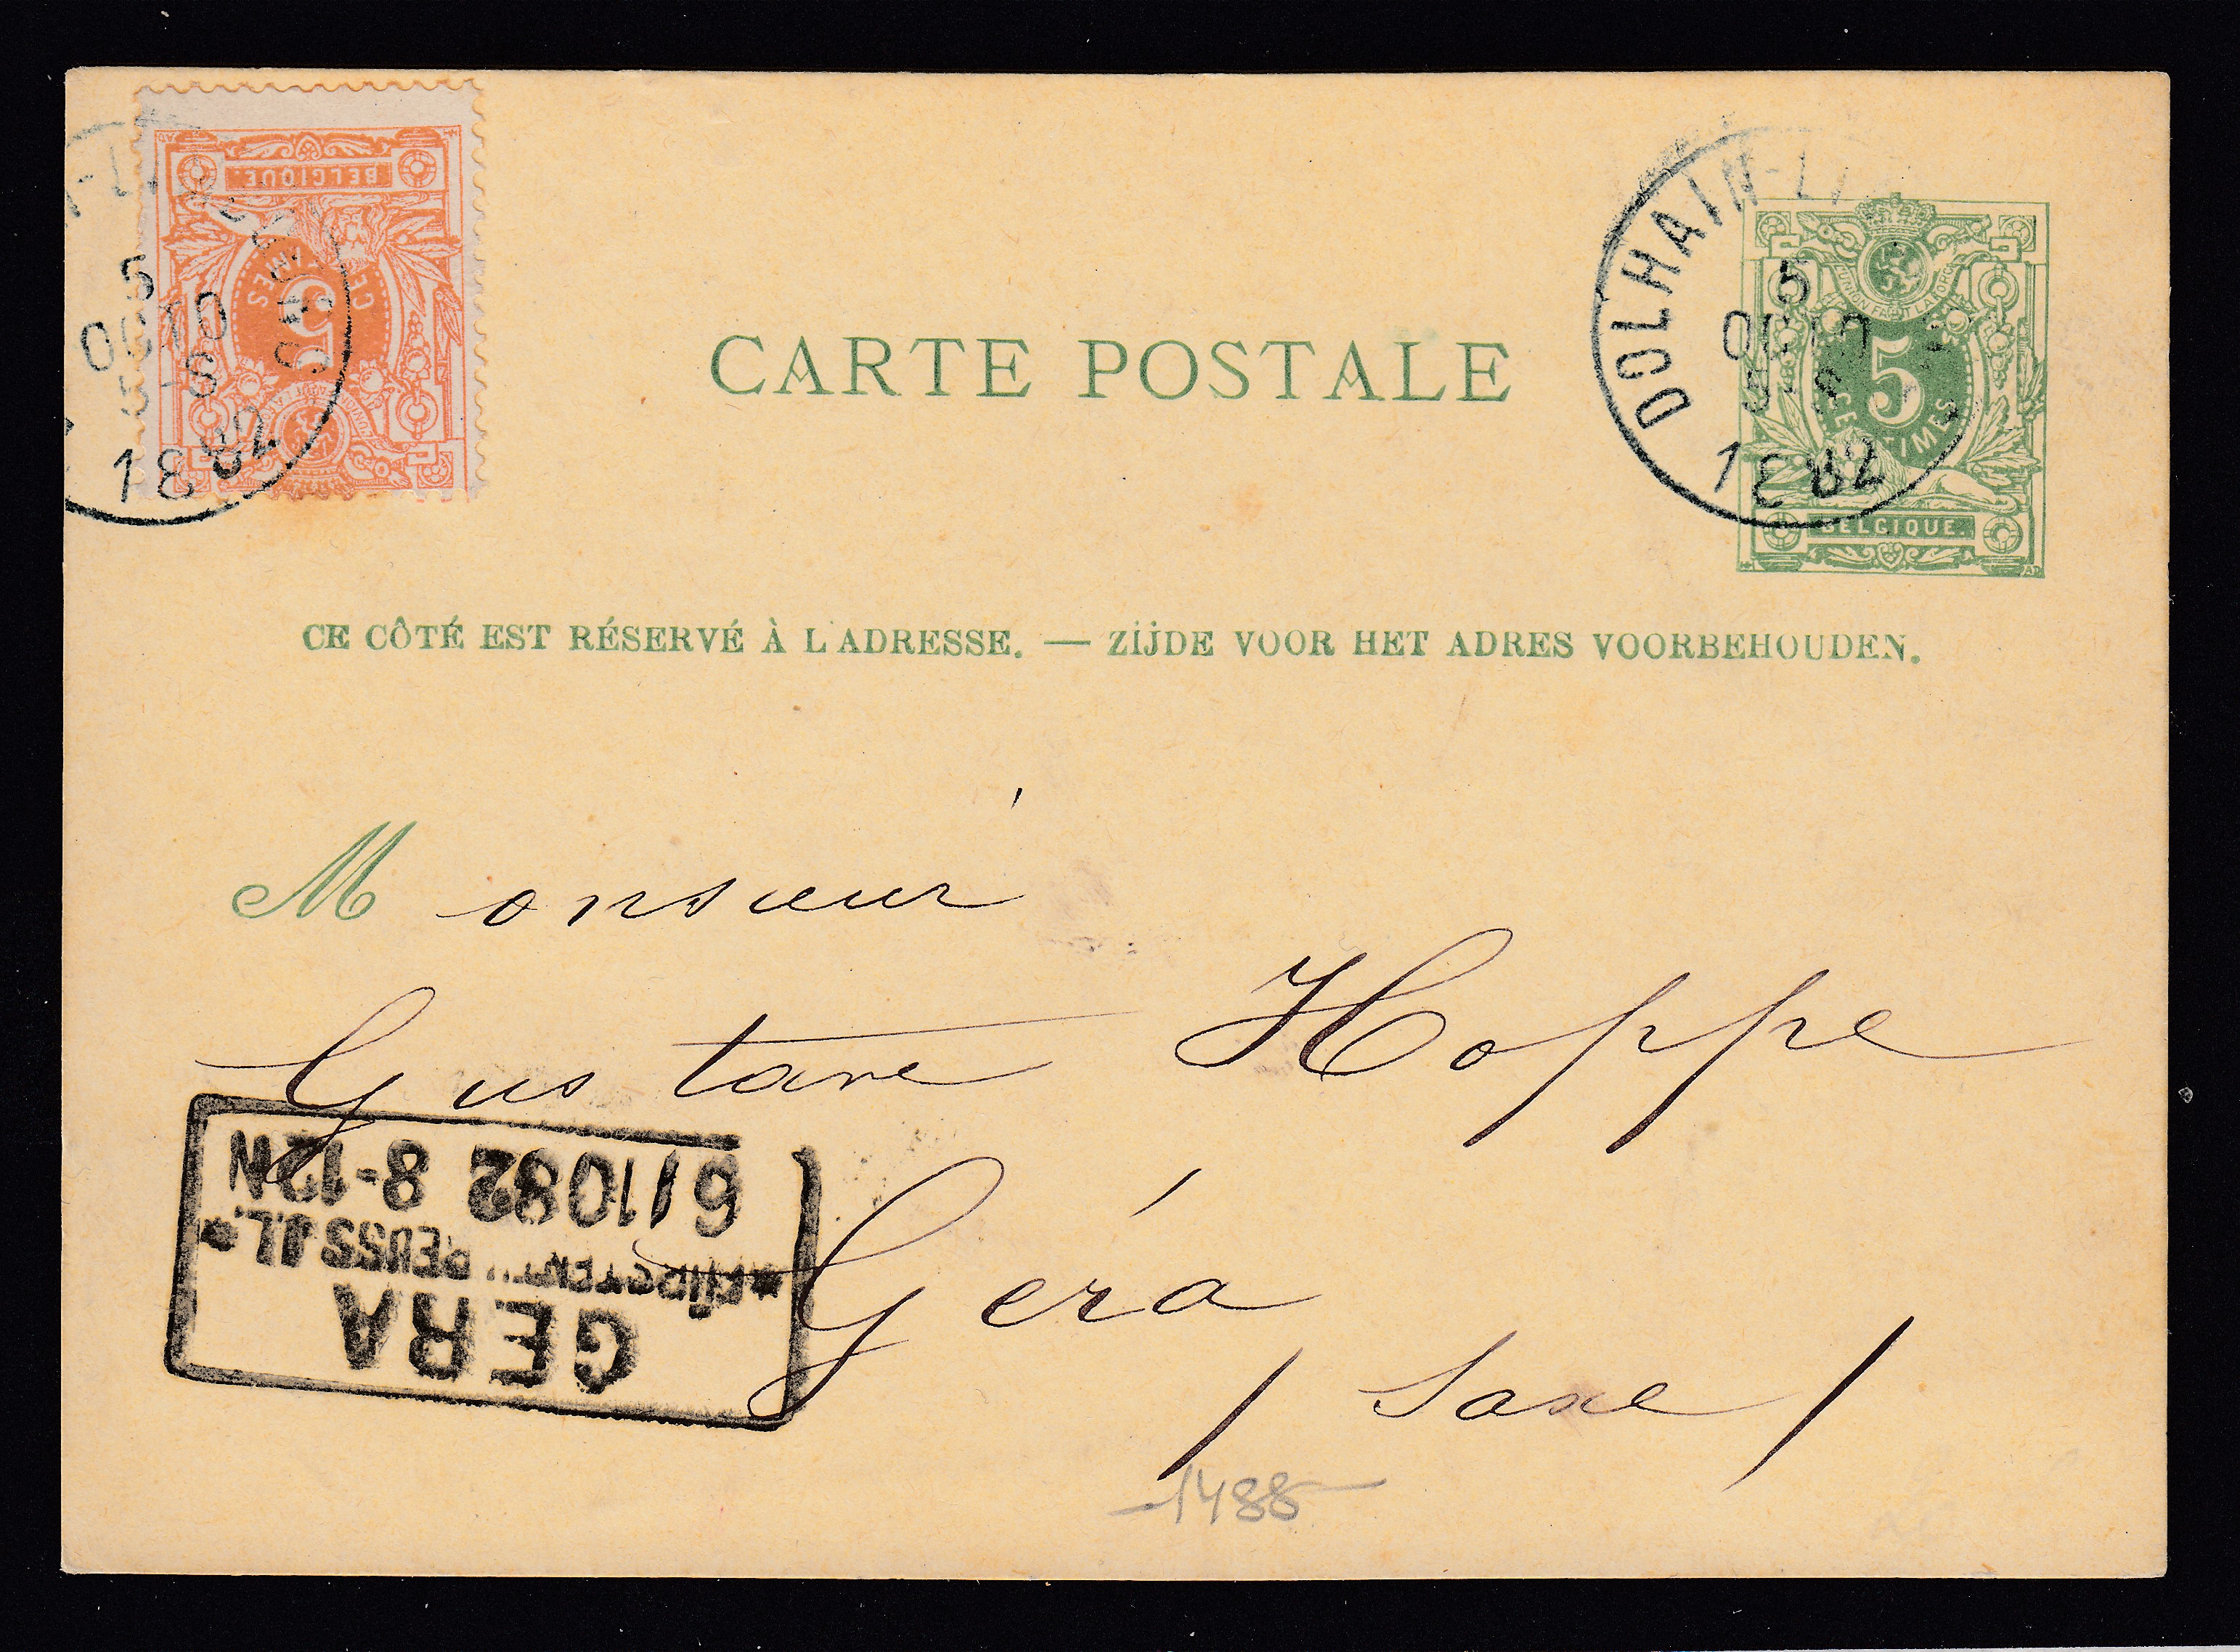 BELGIQUE.
5
CENTIMES
5
OCT 10
5-S
1882
CARTE POSTALE
DOLHAIN-LI
5
OCT 10
5-S
1882
L'UNION FAIT LA FORCE
5
CENTIMES
BELGIQUE.
CE CÔTÉ EST RÉSERVÉ À L'ADRESSE. — ZIJDE VOOR HET ADRES VOORBEHOUDEN.
Monsieur
Gustave Hoppe
Géra
/ Saxe /
GERA
REUSS J.L.
6/10 82 8-12N
-1488-